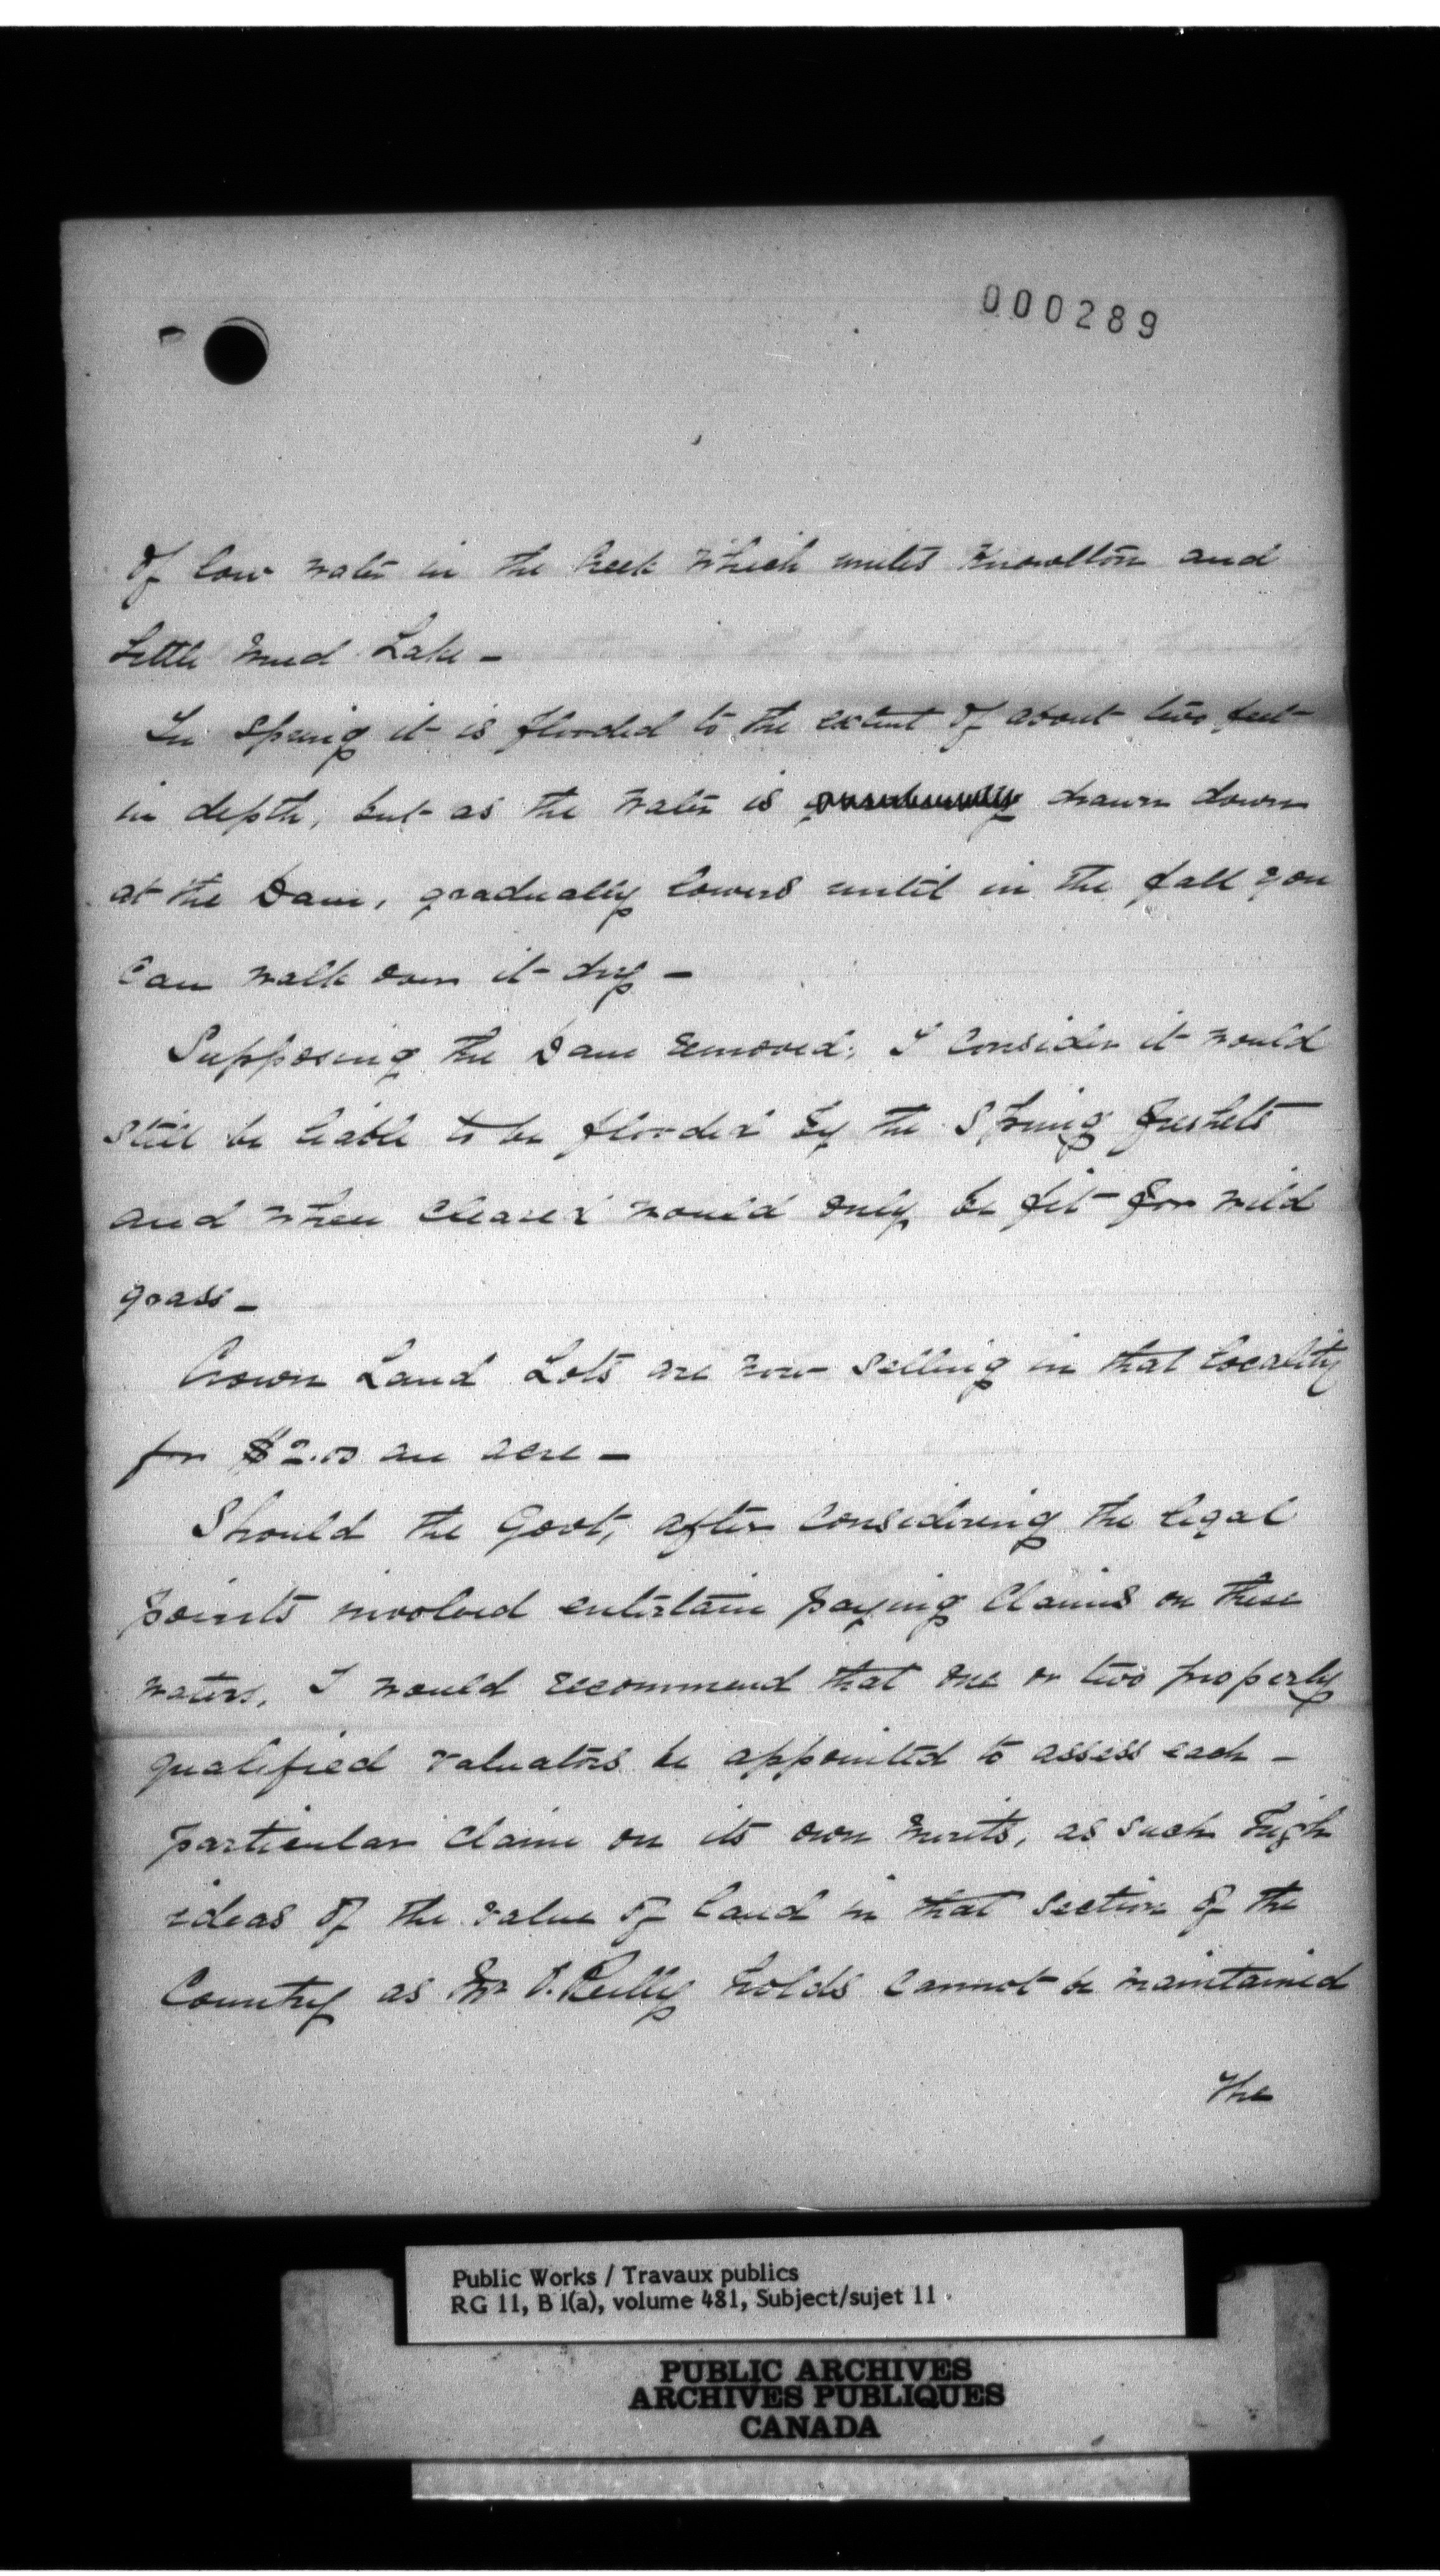 000289
of low water in the Creek which unites Knowlton and
Little Mud Lake -
In spring it is flooded to the extent of about two feet
in depth, but as the water is drawn down
at the Dam, gradually lowers until in the fall you
can walk over it dry -
Supposing the Dam removed, I consider it would
still be liable to be flooded by the Spring freshets
and when cleared would only be fit for wild
grass -
Crown Land Lots are now selling in that locality
for $2.00 an acre -
Should the Govt, after considering the legal
points involved entertain paying Claims on these
waters, I would recommend that one or two properly
qualified valuators be appointed to assess each -
particular claim on its own merits, as such high
ideas of the value of land in that section of the
Country as Mr O.Reilly holds cannot be maintained
The
Public Works / Travaux publics
RG 11, B 1(a), volume 481, Subject/sujet 11
PUBLIC ARCHIVES
ARCHIVES PUBLIQUES
CANADA